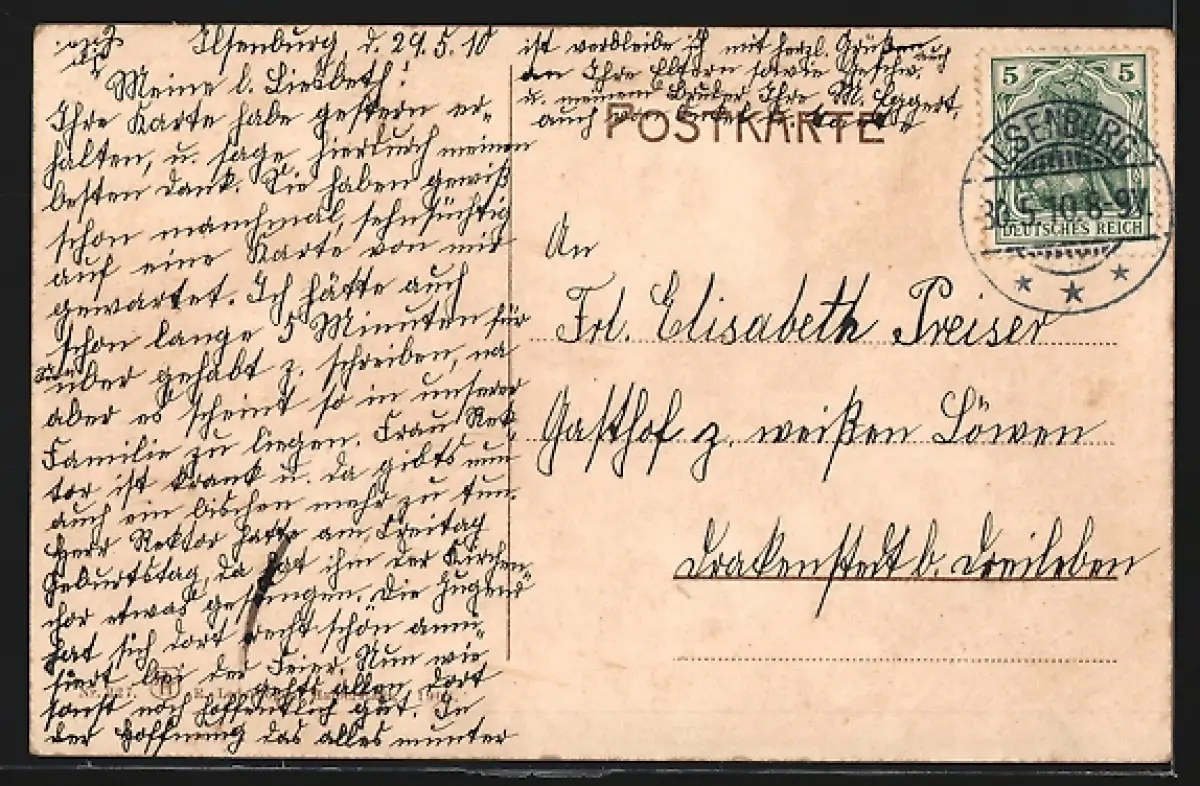 Ilsenburg, d. 29.5.10
Meine l. Liesbeth!
Ihre Karte habe gestern er-
halten, u. sage hierdurch meinen
besten Dank. Sie haben gewiß
schon manchmal, sehnsüchtig
auf eine Karte von mir
gewartet. Ich hätte auch
schon lange 5 Minuten für
über gehabt z. schreiben, na
aber es scheint so in unserer
Familie zu liegen. Frau Rek-
tor ist krank u. da gibts nun
auch ein bischen mehr zu tun.
Herr Rektor hatte am Freitag
Geburtstag, da hat ihm der Kirchen
chor etwas gesungen. Die Jugend
hat sich dort recht schön amü-
siert bei der Feier. Nun wie
gehts allen dort
sonst noch hoffentlich gut. In
der Hoffnung das alles munter
ist verbleibe ich mit herzl. Grüßen auch
an Ihre Eltern sowie Geschw.
u. meinem Bruder Ihre M. Eggert.
auch von
POSTKARTE
5 5
DEUTSCHES REICH
ILSENBURG
30.5.10.8-9V.
An
Frl. Elisabeth Preiser
Gasthof z. weißen Löwen
Drakenstedt b. Dreileben